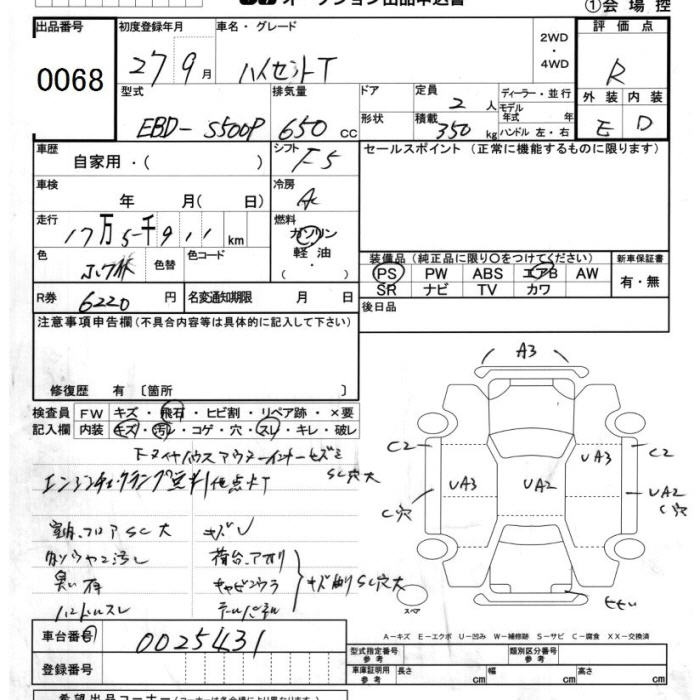 オークション出品申込書
①会場控
出品番号 初度登録年月 車名・グレード 2WD・4WD 評価点
0068 27 9月 ハイゼットT R
型式 排気量 ドア 定員 2人 ディーラー・並行 外装 内装
モデル年式 年
EBD-S500P 650cc 形状 積載 350kg ハンドル 左・右 E D
車歴 自家用・( ) シフト F5 セールスポイント (正常に機能するものに限ります)
車検 年 月(日) 冷房 AC
走行 17万5千911km 燃料 ガソリン
軽油・( )
色 色替 色コード
装備品(純正品に限り○をつけてください) 新車保証書
PS PW ABS エアB AW 有・無
SR ナビ TV カワ
R券 6220円 名変通知期限 月 日 後日品
注意事項申告欄(不具合内容等は具体的に記入して下さい)
修復歴 有〔箇所 〕
検査員 FW キズ・飛石・ヒビ割・リペア跡・×要
記入欄 内装 キズ・汚レ・コゲ・穴・スレ・キレ・破レ
SC穴大
エンジンチェックランプ
室内フロアSC大 キズ
荷台アオリ
臭い
ハンドルスレ テールパネル
キズ SC穴大
A3
C2 UA3 C2
UA3 UA2 UA2
C穴 C穴
スペア
A-キズ E-エクボ U-凹み W-補修跡 S-サビ C-腐食 XX-交換済
車台番号 0025431
型式指定番号 参考 類別区分番号 参考
登録番号 車庫証明用 参考 長さ cm 幅 cm 高さ cm
希望出品コーナー